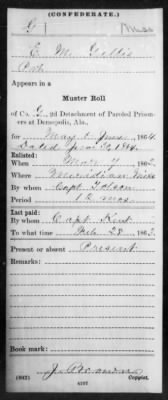 (CONFEDERATE.)
G Miss
E. M. Gillis
Pvt
Appears in a
Muster Roll
of Co. G, 2d Detachment of Paroled Prison-
ers at Demopolis, Ala.,
for May & June, 1864.
Dated June 30, 1864.
Enlisted:
When May 7, 1862.
Where Meridian Miss
By whom Capt
Period 12 mos.
Last paid:
By whom Capt. Kent
To what time Feb. 28, 1863.
Present or absent Present
Remarks:
Book mark:
(642) Copyist.